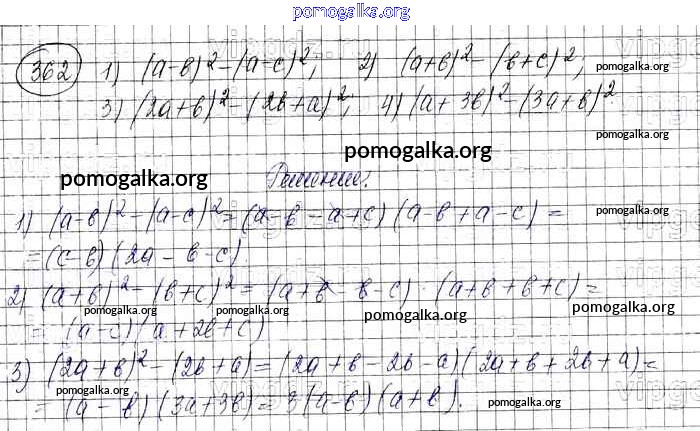 pomogalka.org
362 1) (a-в)²-(a-c)²; 2) (a+в)²-(в+c)²;
pomogalka.org
3) (2a+в)²-(2в+a)²; 4) (a+3в)²-(3a+в)²
pomogalka.org
pomogalka.org
pomogalka.org
Решение.
1) (a-в)²-(a-c)²=(a-в-a+c)(a-в+a-c)=
pomogalka.org
=(c-в)(2a-в-c)
2) (a+в)²-(в+c)²=(a+в-в-c)·(a+в+в+c)=
pomogalka.org pomogalka.org pomogalka.org
=(a-c)(a+2в+c)
3) (2a+в)²-(2в+a)=(2a+в-2в-a)(2a+в+2в+a)=
pomogalka.org
=(a-в)(3a+3в)=3(a-в)(a+в).
pomogalka.org